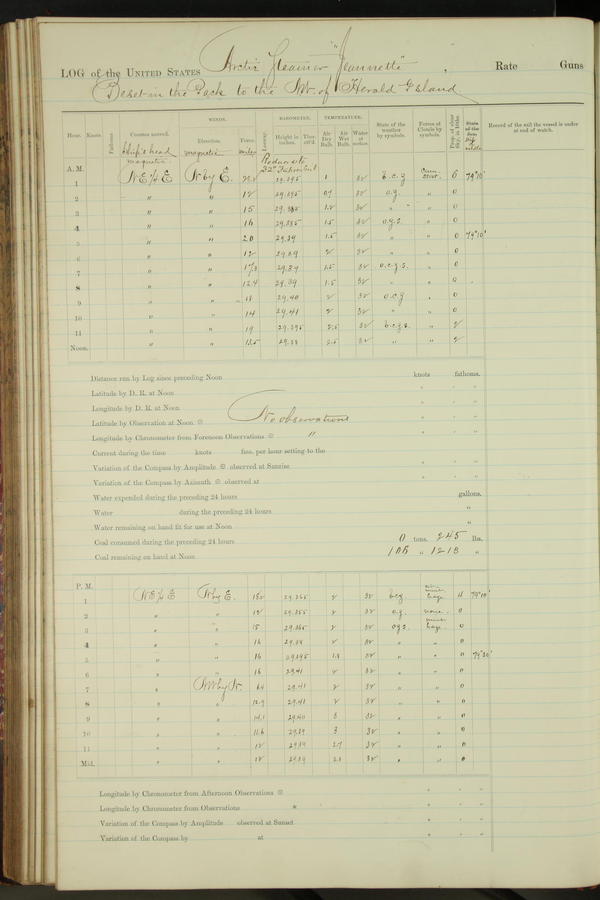 LOG of the UNITED STATES Arctic Steamer "Jeannette", Rate Guns
Beset in the Pack to the NW. of Herald Island
Hour. Knots. Fathoms. Courses steered. WINDS. Direction. Force. Leeway. BAROMETER. Height in inches. Ther. att'd. TEMPERATURE. Air Dry Bulb. Air Wet Bulb. Water at surface. State of the weather by symbols. Forms of Clouds by symbols. Prop. of clear Sky, in 10ths. State of the Sea. Record of the sail the vessel is under at end of watch.
Ship's head magnetic miles
magnetic.
A. M.
1 NE ½ E N by E. 29.395 1 32 b.c.g 6 79°10'
2 " " 12 29.395 32 o.g. " 0
3 " " 15 29.385 1.2 32 " " " 0
4 " " 16 29.385 1.5 32 o.g.s. " 0
5 " " 20 29.39 1.5 32 " " 0 79°10'
6 " " 12 29.39 2 32 " " 0
7 " " 29.39 1.5 32 o.c.g.s. " 0
8 " " 12.4 29.39 1.5 32 " " 0
9 " " 18 29.40 2 32 o.c.g " 0
10 " " 14 29.41 2 32 " " 0
11 " " 19 29.395 2.5 32 b.c.g.s. " 2
Noon. " " 13.5 29.38 2.5 32 " " 2
Distance run by Log since preceding Noon knots fathoms.
Latitude by D. R. at Noon ° ' "
Longitude by D. R. at Noon ° ' "
Latitude by Observation at Noon No observations ° ' "
Longitude by Chronometer from Forenoon Observations " ° ' "
Current during the time knots fms. per hour setting to the
Variation of the Compass by Amplitude observed at Sunrise ° ' "
Variation of the Compass by Azimuth observed at ° ' "
Water expended during the preceding 24 hours gallons.
Water during the preceding 24 hours "
Water remaining on hand fit for use at Noon "
Coal consumed during the preceding 24 hours 0 tons. 245 lbs.
Coal remaining on hand at Noon " 1218 "
P. M.
1 NE ½ E N by E. 29.365 2 32 b.c.g. haze 79°10'
2 " " 12 29.355 2 32 o.g. none. 0
3 " " 15 29.365 2 32 o.g.s. haze 0
4 " " 16 29.38 2 32 " " 0
5 " " 16 29.395 1.8 32 " " 0
6 " " 16 29.41 2 32 " " 0
7 " NW by N. 29.41 2 32 " " 0
8 " " 12.9 29.41 2 32 " " 0
9 " " 14.1 29.40 3 32 " " 0
10 " " 11.6 29.39 3 32 " " 0
11 " " 12 29.39 2.7 32 " " 0
Mid. " " 12 29.39 32 " " 0
Longitude by Chronometer from Afternoon Observations ° ' "
Longitude by Chronometer from Observations * ° ' "
Variation of the Compass by Amplitude observed at Sunset ° ' "
Variation of the Compass by at ° ' "